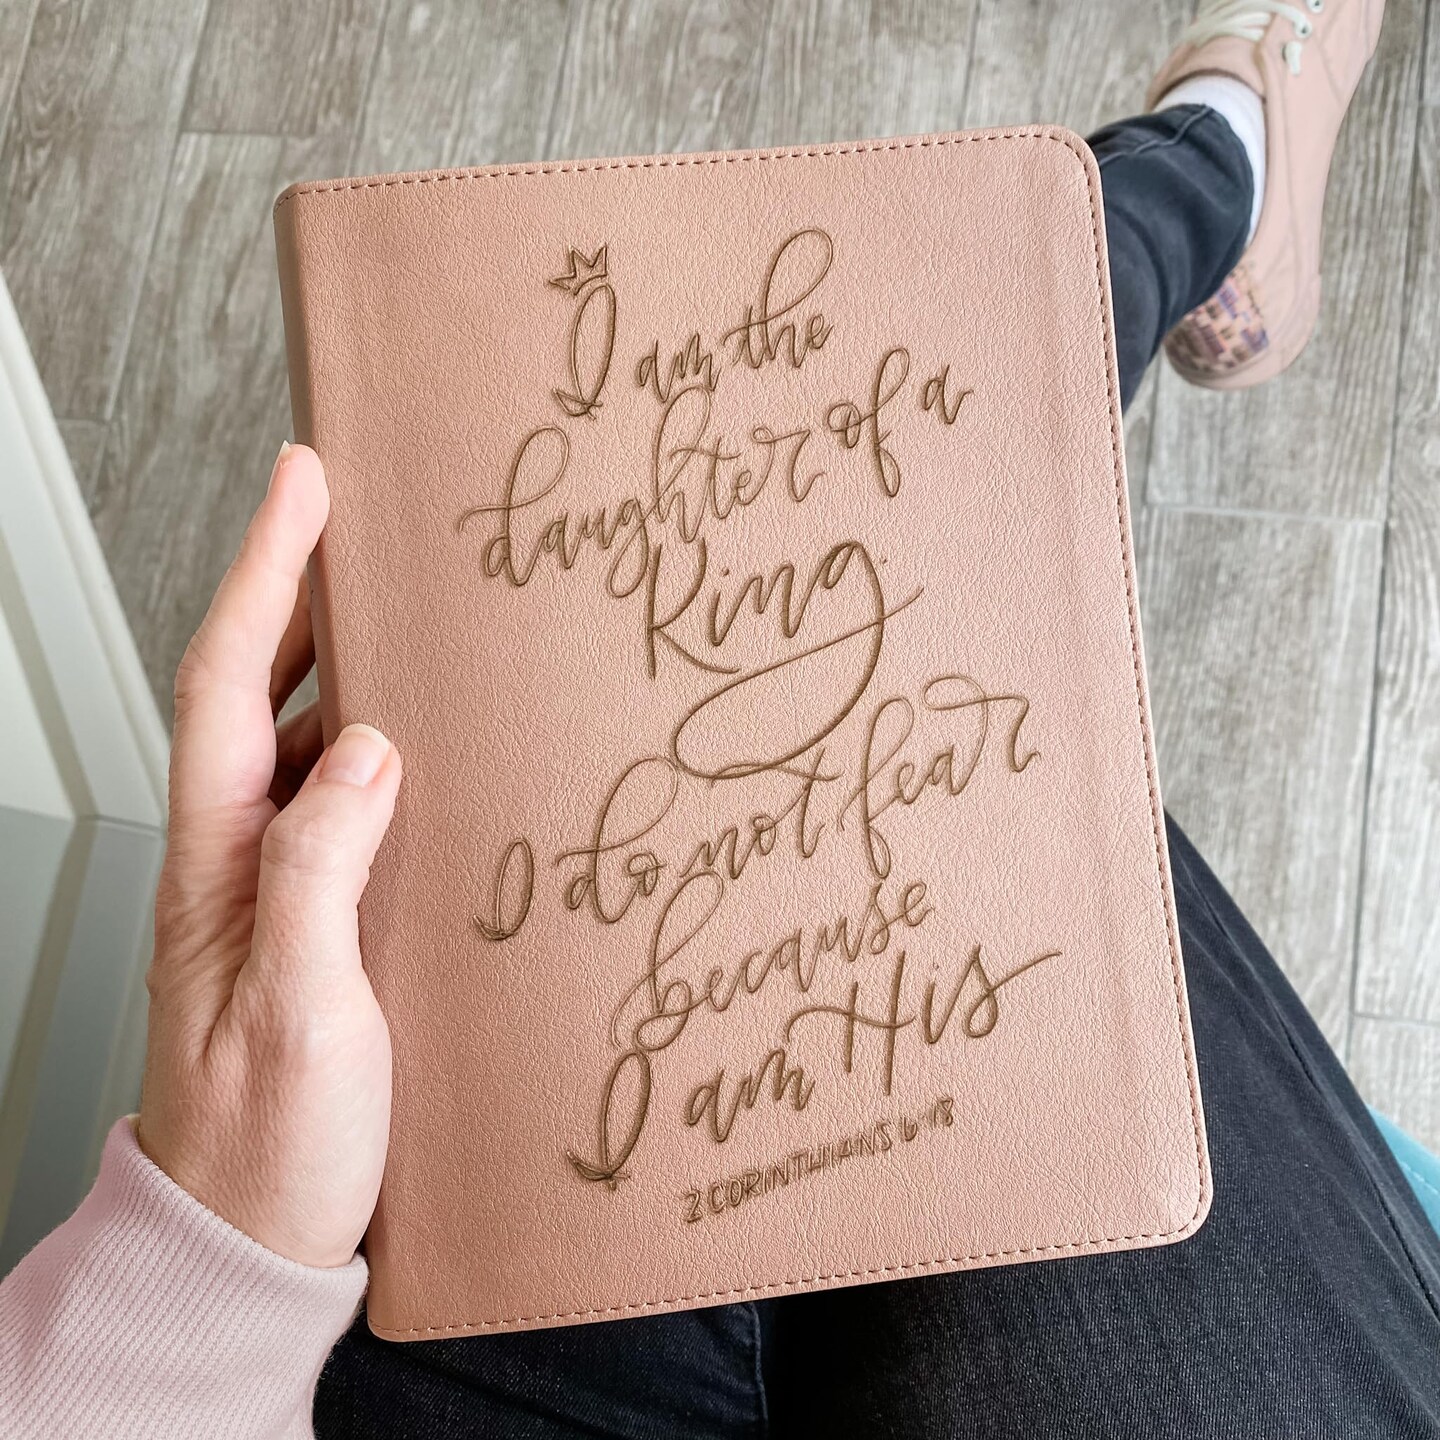 I am the
daughter of a
King
I do not fear
because
I am His
2 CORINTHIANS 6:18